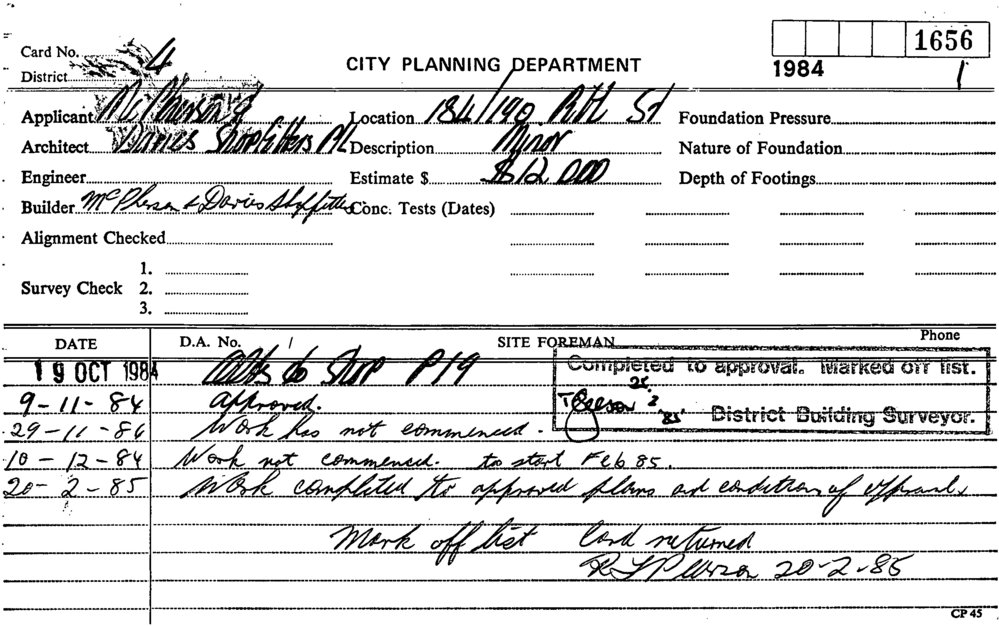 1656
Card No. 4
CITY PLANNING DEPARTMENT
1984 1
District
Applicant McPherson & Location 184/190 Pitt St Foundation Pressure
Architect Davies Shopfitters P/L Description Minor Nature of Foundation
Engineer Estimate $ $12,000 Depth of Footings
Builder McPherson & Davies Shopfitters Conc. Tests (Dates)
Alignment Checked
1.
Survey Check 2.
3.
DATE D.A. No. / SITE FOREMAN Phone
19 OCT 1984 to Shop P19 Completed to approval. Marked off list.
9-11-84 approved. 25. 2 '85' District Building Surveyor.
29-11-84 Work has not commenced.
10-12-84 Work not commenced. to start Feb 85.
20-2-85 Work completed to approved plans and conditions of approval.
Mark off list Card returned
20-2-85
CP 45